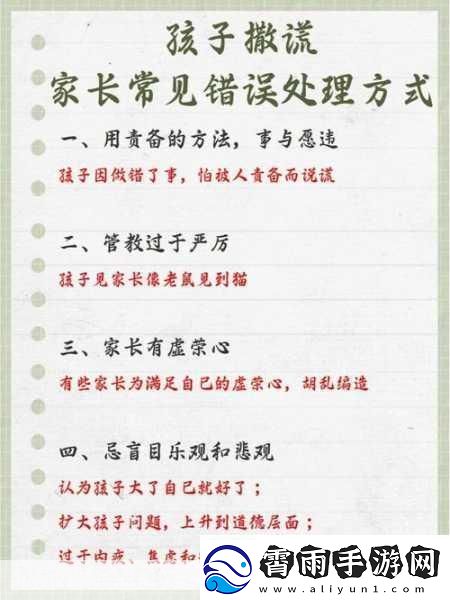 孩子撒谎
家长常见错误处理方式
一、用责备的方法，事与愿违
孩子因做错了事，怕被人责备而说谎
二、管教过于严厉
孩子见家长像老鼠见到猫
三、家长有虚荣心
有些家长为满足自己的虚荣心，胡乱编造
四、忌盲目乐观和悲观
认为孩子大了自己就好了；
扩大孩子问题，上升到道德层面；
过于内疚、焦虑和
霄雨手游网
www.aliyun1.com